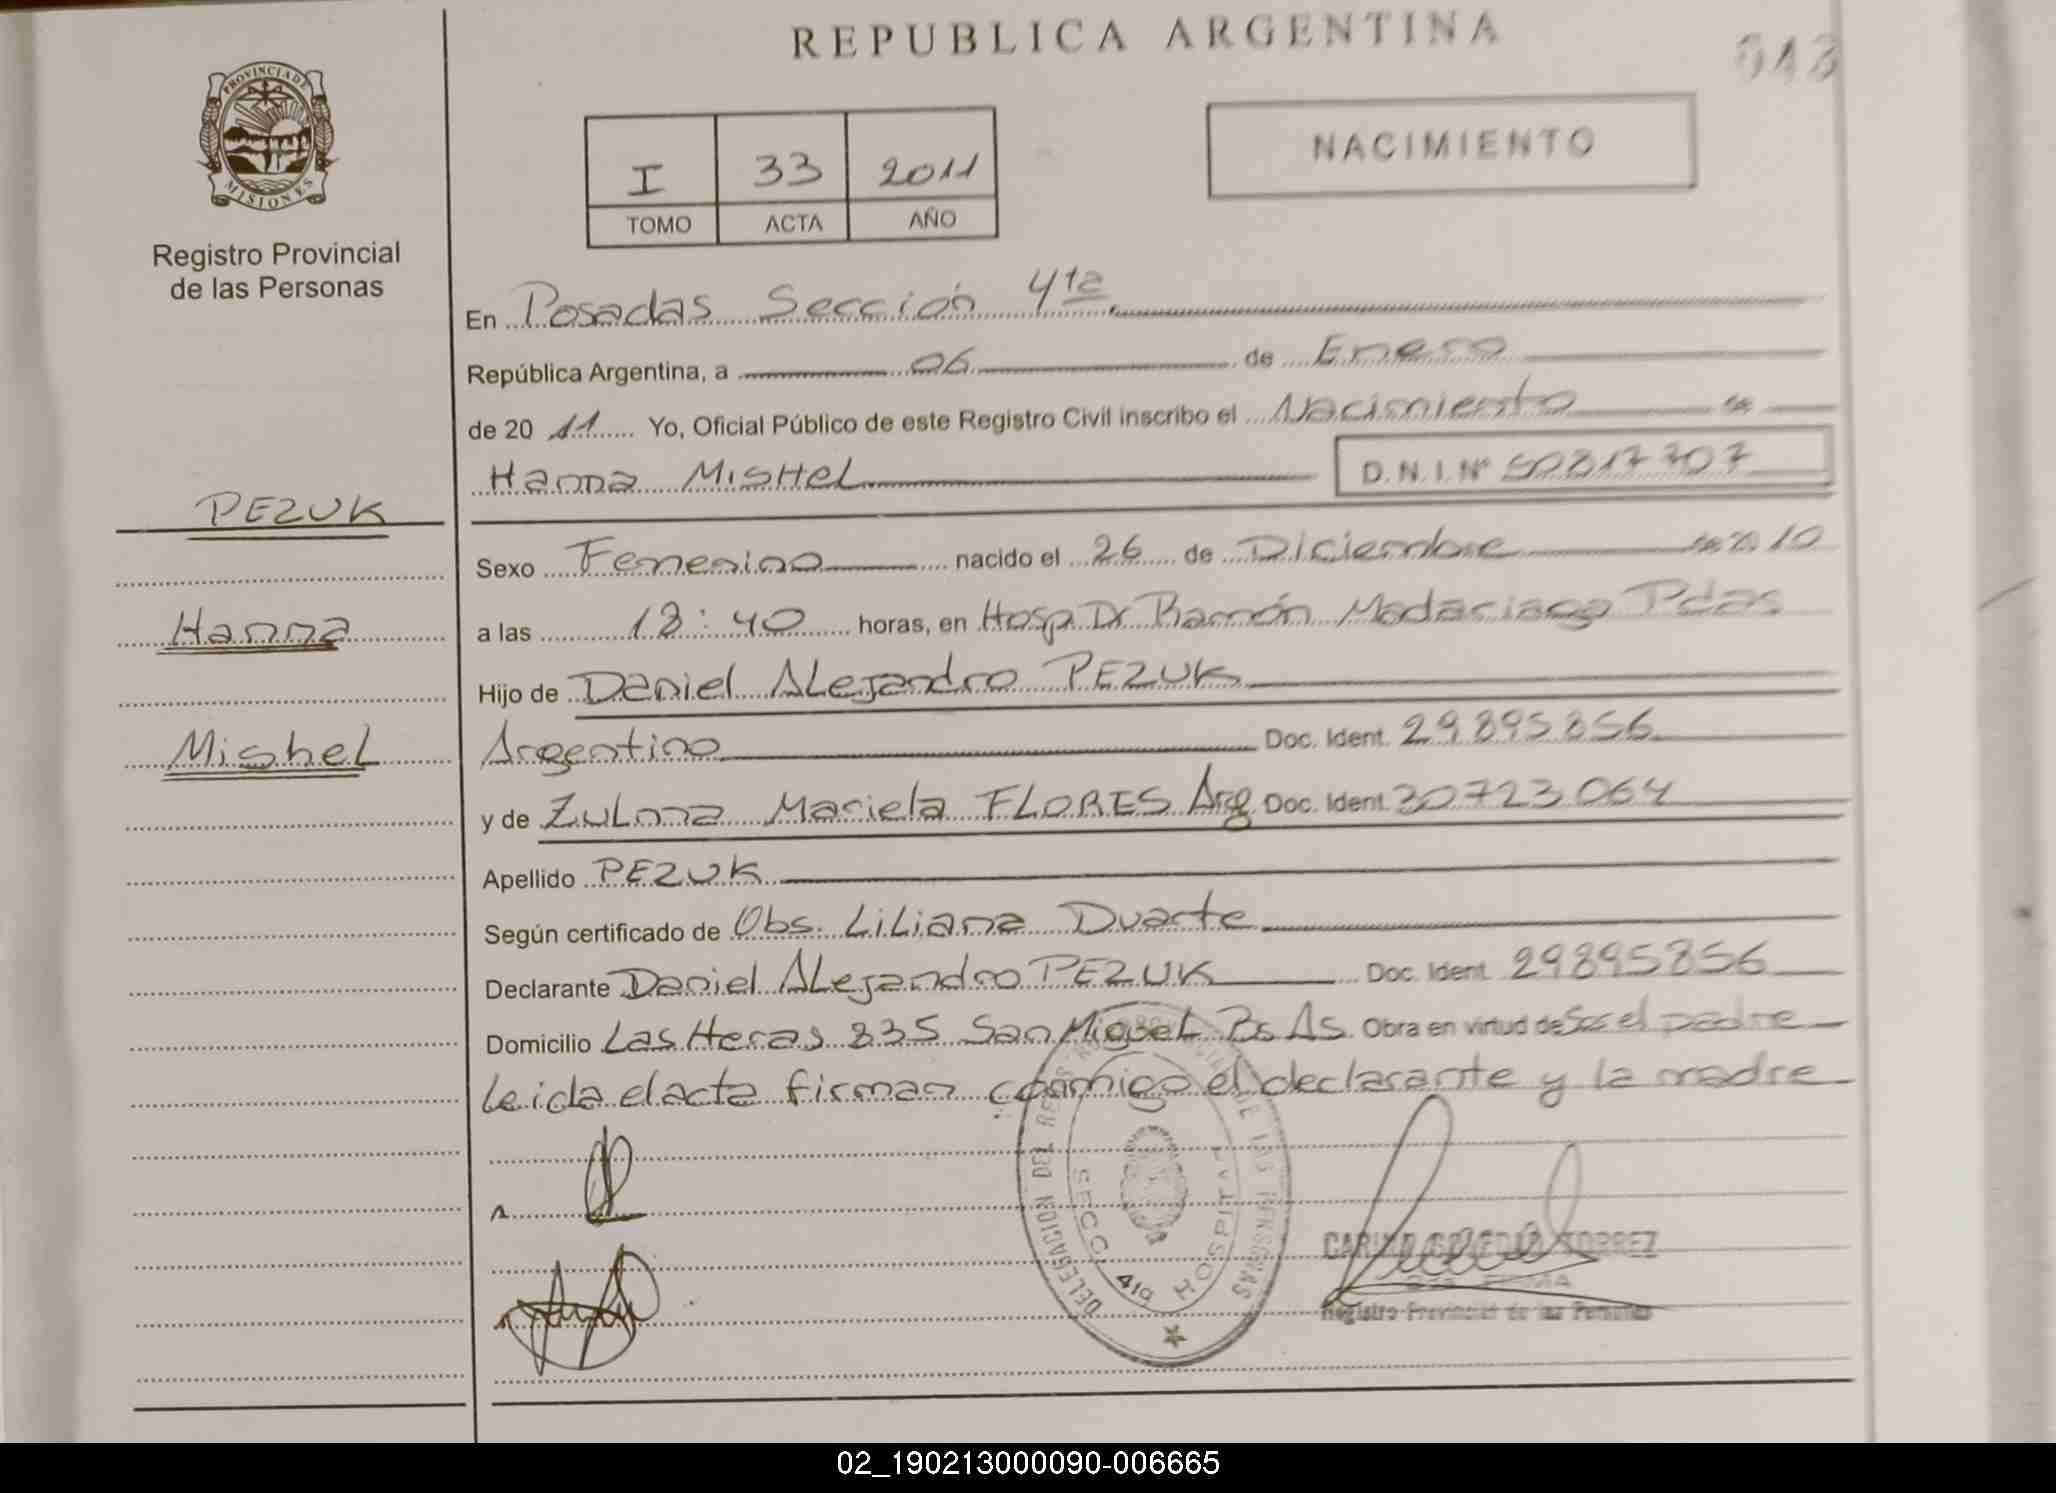 REPUBLICA ARGENTINA
PROVINCIA DE
MISIONES
Registro Provincial
de las Personas
I 33 2011
TOMO ACTA AÑO
NACIMIENTO
En Posadas Sección 4ta
República Argentina, a 06 de Enero
de 20 11 Yo, Oficial Público de este Registro Civil inscribo el Nacimiento
Hanna MisHeL D.N.I. Nº 50817707
PEZUK
Hanna
MisheL
Sexo Femenino nacido el 26 de Diciembre 10
a las 18:40 horas, en Hosp. Dr Ramón Madariaga Pdas
Hijo de Daniel ALejandro PEZUK
Argentino Doc. Ident. 29895856
y de ZuLma Mariela FLORES Arg Doc. Ident. 30723064
Apellido PEZUK
Según certificado de Obs. LiLiana Duarte
Declarante Daniel ALejandro PEZUK Doc. Ident. 29895856
Domicilio Las Heras 835 San MigueL Bs As. Obra en virtud de Ser el padre
Leida el acta firman conmigo el declarante y la madre
DELEGACION DEL
DE LAS PERSONAS
SECC. 4ta HOSPITAL
TORREZ
FIRMA
Registro Provincial de las Personas
02_190213000090-006665